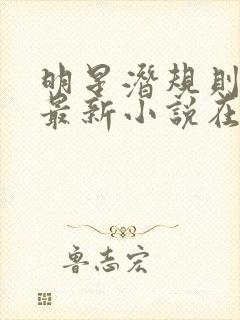 明星潛規則
最新小說在
魯志宏